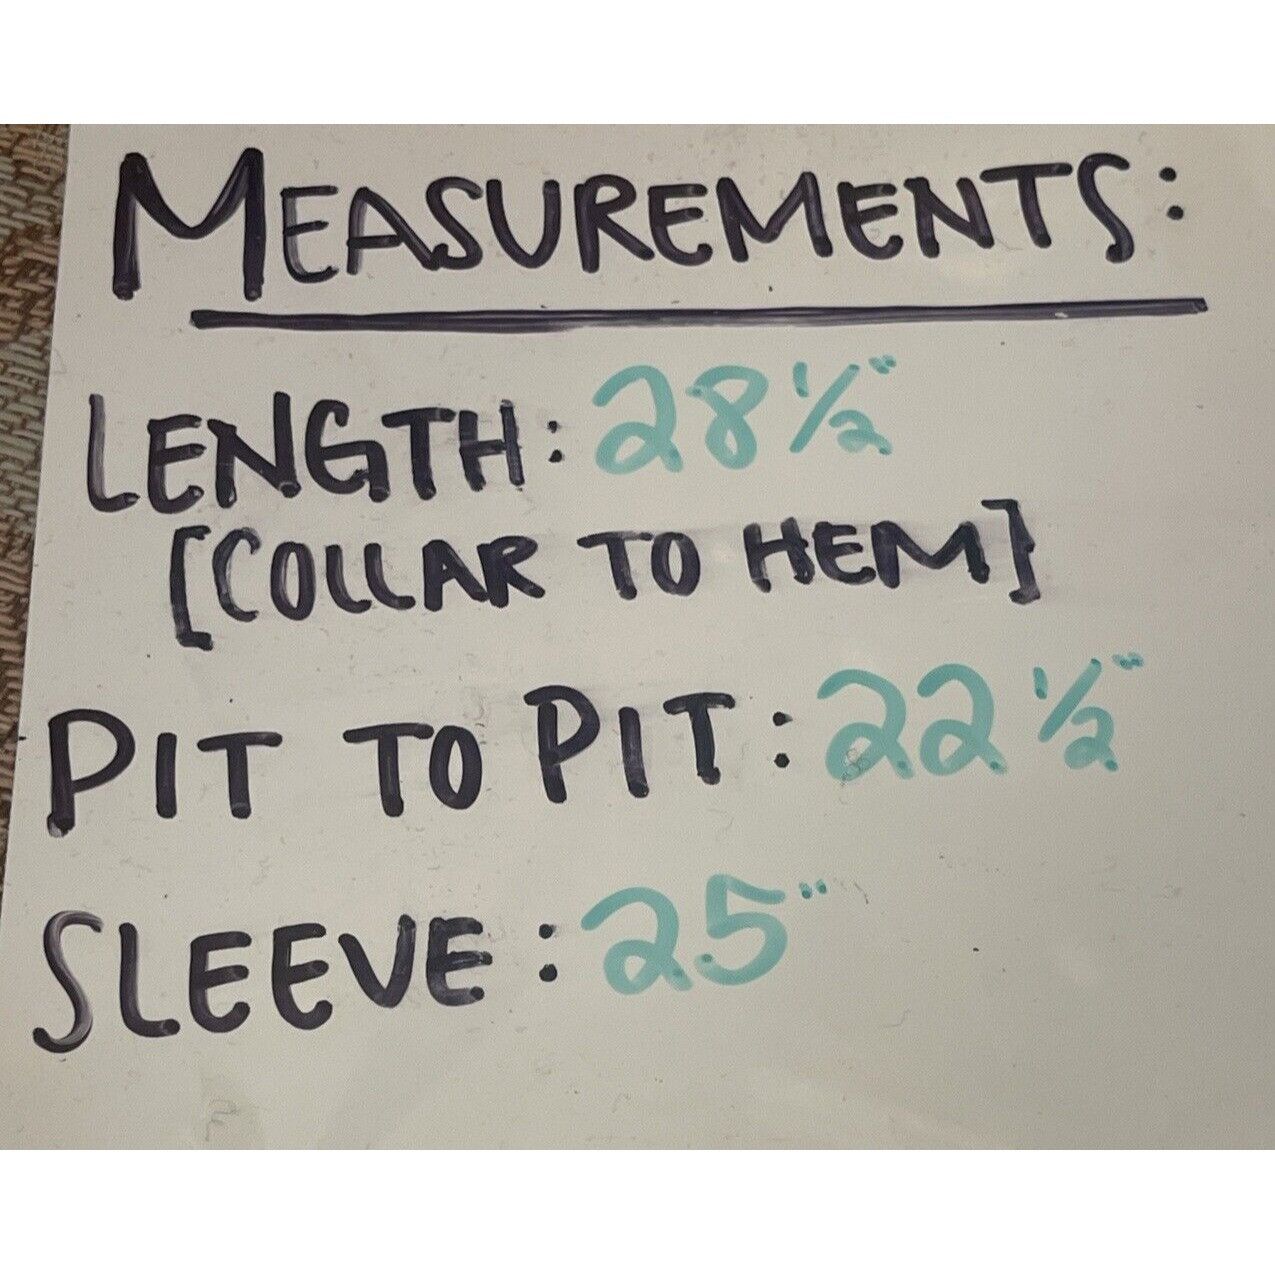 MEASUREMENTS:
LENGTH: 28 1/2"
[COLLAR TO HEM]
PIT TO PIT: 22 1/2"
SLEEVE: 25"